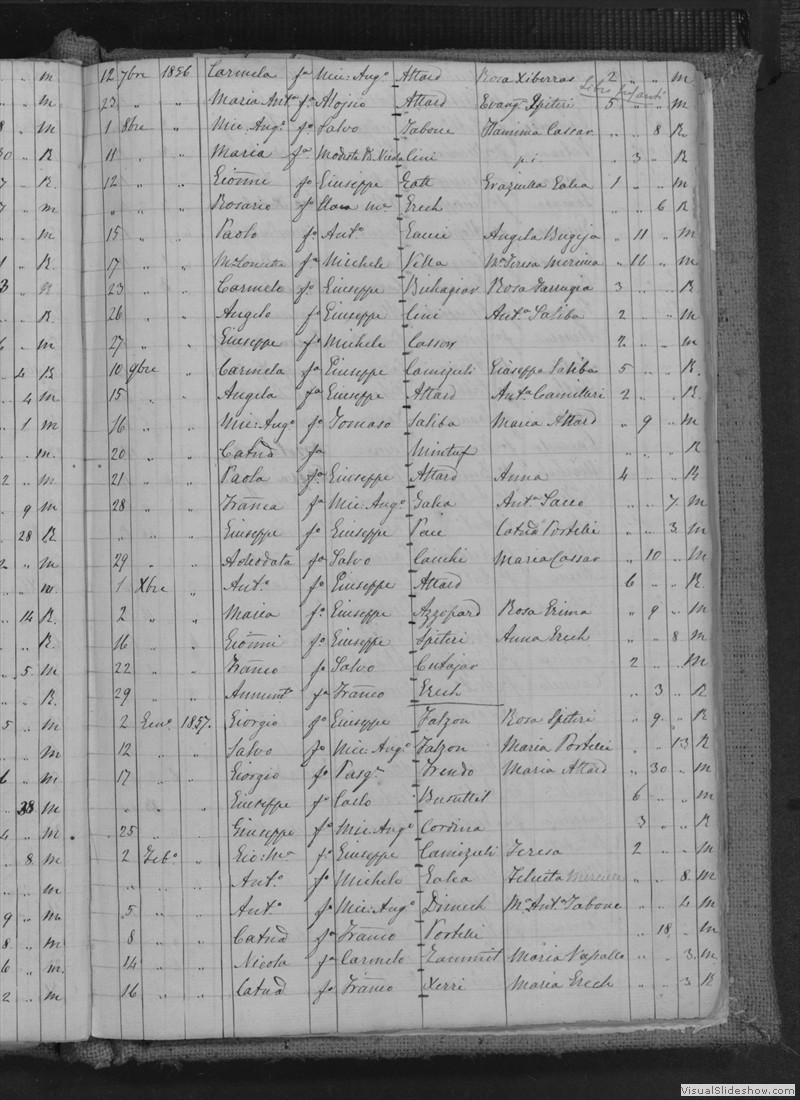 12 7bre 1856 Carmela fa Mic: Ango Attard Rosa Xiberras 2 „ „ m
Libro infanti
23 „ „ Maria Anta fa Aloysio Attard Evanga Spiteri 5 „ „ m
1 8bre „ Mic. Ango fo Salvo Tabone Flaminia Cassar „ „ 8 R
11 „ „ Maria fa Modesto Cini „ 3 „ R
12 „ „ Gionni fo Giuseppe Gatt Graziulla Galea 1 „ „ m
„ „ „ Rosario fo Grech „ „ 6 R
15 „ „ Paolo fo Anto Gauci Angela Bugeja „ 11 „ m
17 „ „ fa Michele Vella Ma Teresa „ 16 „ m
23 „ „ Carmelo fo Giuseppe Buhagiar Rosa Farrugia 3 „ „ R
26 „ „ Angelo fo Giuseppe Cini Anta Saliba 2 „ „ m
27 „ „ Giuseppe fo Michele Cassar 2 „ „ m
10 9bre „ Carmela fa Giuseppe Camizuli Giuseppa Saliba 5 „ „ R
15 „ „ Angela fa Giuseppe Attard Anta Camilleri 2 „ „ R.
16 „ „ Mic: Ango fo Tomaso Saliba Maria Attard „ 9 „ m
20 „ „ Catna fa Mintuf „ „ „ R
21 „ „ Paola fa Giuseppe Attard Anna 4 „ „ R
28 „ „ Franca fa Mic: Ango Galea Anta Sacco „ „ 7 m
„ „ „ Giuseppe fo Giuseppe Pace Catna Portelli „ „ 3 m
29 „ „ Adeodata fa Salvo Cauchi Maria Cassar „ 10 „ m
1 Xbre „ Anto fo Giuseppe Attard 6 „ „ R.
2 „ „ Maria fa Giuseppe Azzopard Rosa Grima „ 9 „ m
16 „ „ Gionni fo Giuseppe Spiteri Anna Grech „ „ 8 m
22 „ „ Franco fo Salvo Cutajar 2 „ „ m
29 „ „ Annunta fa Franco Grech „ 3 „ R
2 Geno 1857. Giorgio fo Giuseppe Falzon Rosa Spiteri „ 9 „ R
12 „ „ Salvo fo Mic: Ango Falzon Maria Portelli „ „ 13 R
17 „ „ Giorgio fo Pasqe Trendo Maria Attard „ 30 „ m
„ „ „ Giuseppe fo Carlo Busuttil 6 „ „ m
25 „ „ Giuseppe fo Mic: Ango Cordina 3 „ „ R
2 Febo „ Gio: Ma fo Giuseppe Camizuli Teresa 2 „ „ m
„ „ „ Anto fo Michele Galea „ „ 8 m
5 „ „ Anto fo Mic: Ango Dimech Ma Anta Tabone „ „ 4 m
8 „ „ Catna fa Franco Portelli „ 18 „ m
14 „ „ Nicola fo Carmelo Zammit Maria „ „ 3 m
16 „ „ Catna fa Franco Xerri Maria Grech „ „ 3 R
VisualSlideshow.com